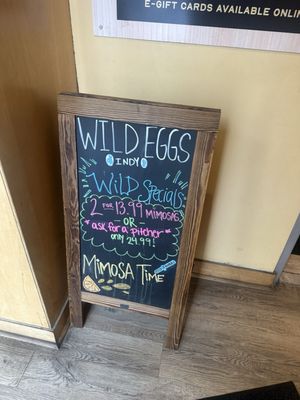 E-GIFT CARDS AVAILABLE ONLINE
WILD EGGS
INDY
Wild Specials
2 FOR 13.99 MIMOSAS
- OR -
* ask for a Pitcher *
only 24.99!
MIMOSA TIME